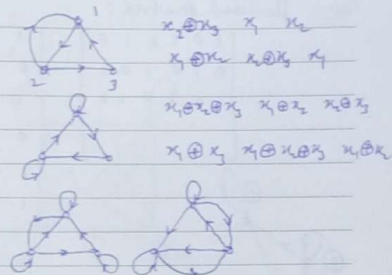 1
x₂⊕x₃ x₁ x₂
x₁⊕x₂ x₂⊕x₃ x₁
2 3
x₁⊕x₂⊕x₃ x₁⊕x₂ x₂⊕x₃
x₁⊕x₃ x₁⊕x₂⊕x₃ x₁⊕x₂